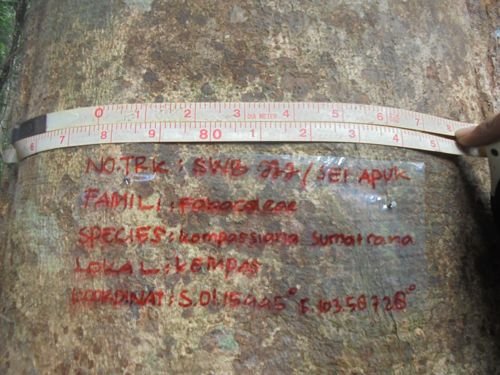 0 1 2 3 DIA METER 4 5 6 7 8
6 7 8 9 80 1 2 3 4 5
NO.TRK : SWB 222 / SEI APUK
FAMILI : Fabaceae
SPECIES : Kompassiana Sumatrana
LOKAL : KEMPAS
KOORDINAT : S.01.15445° E.103.58728°